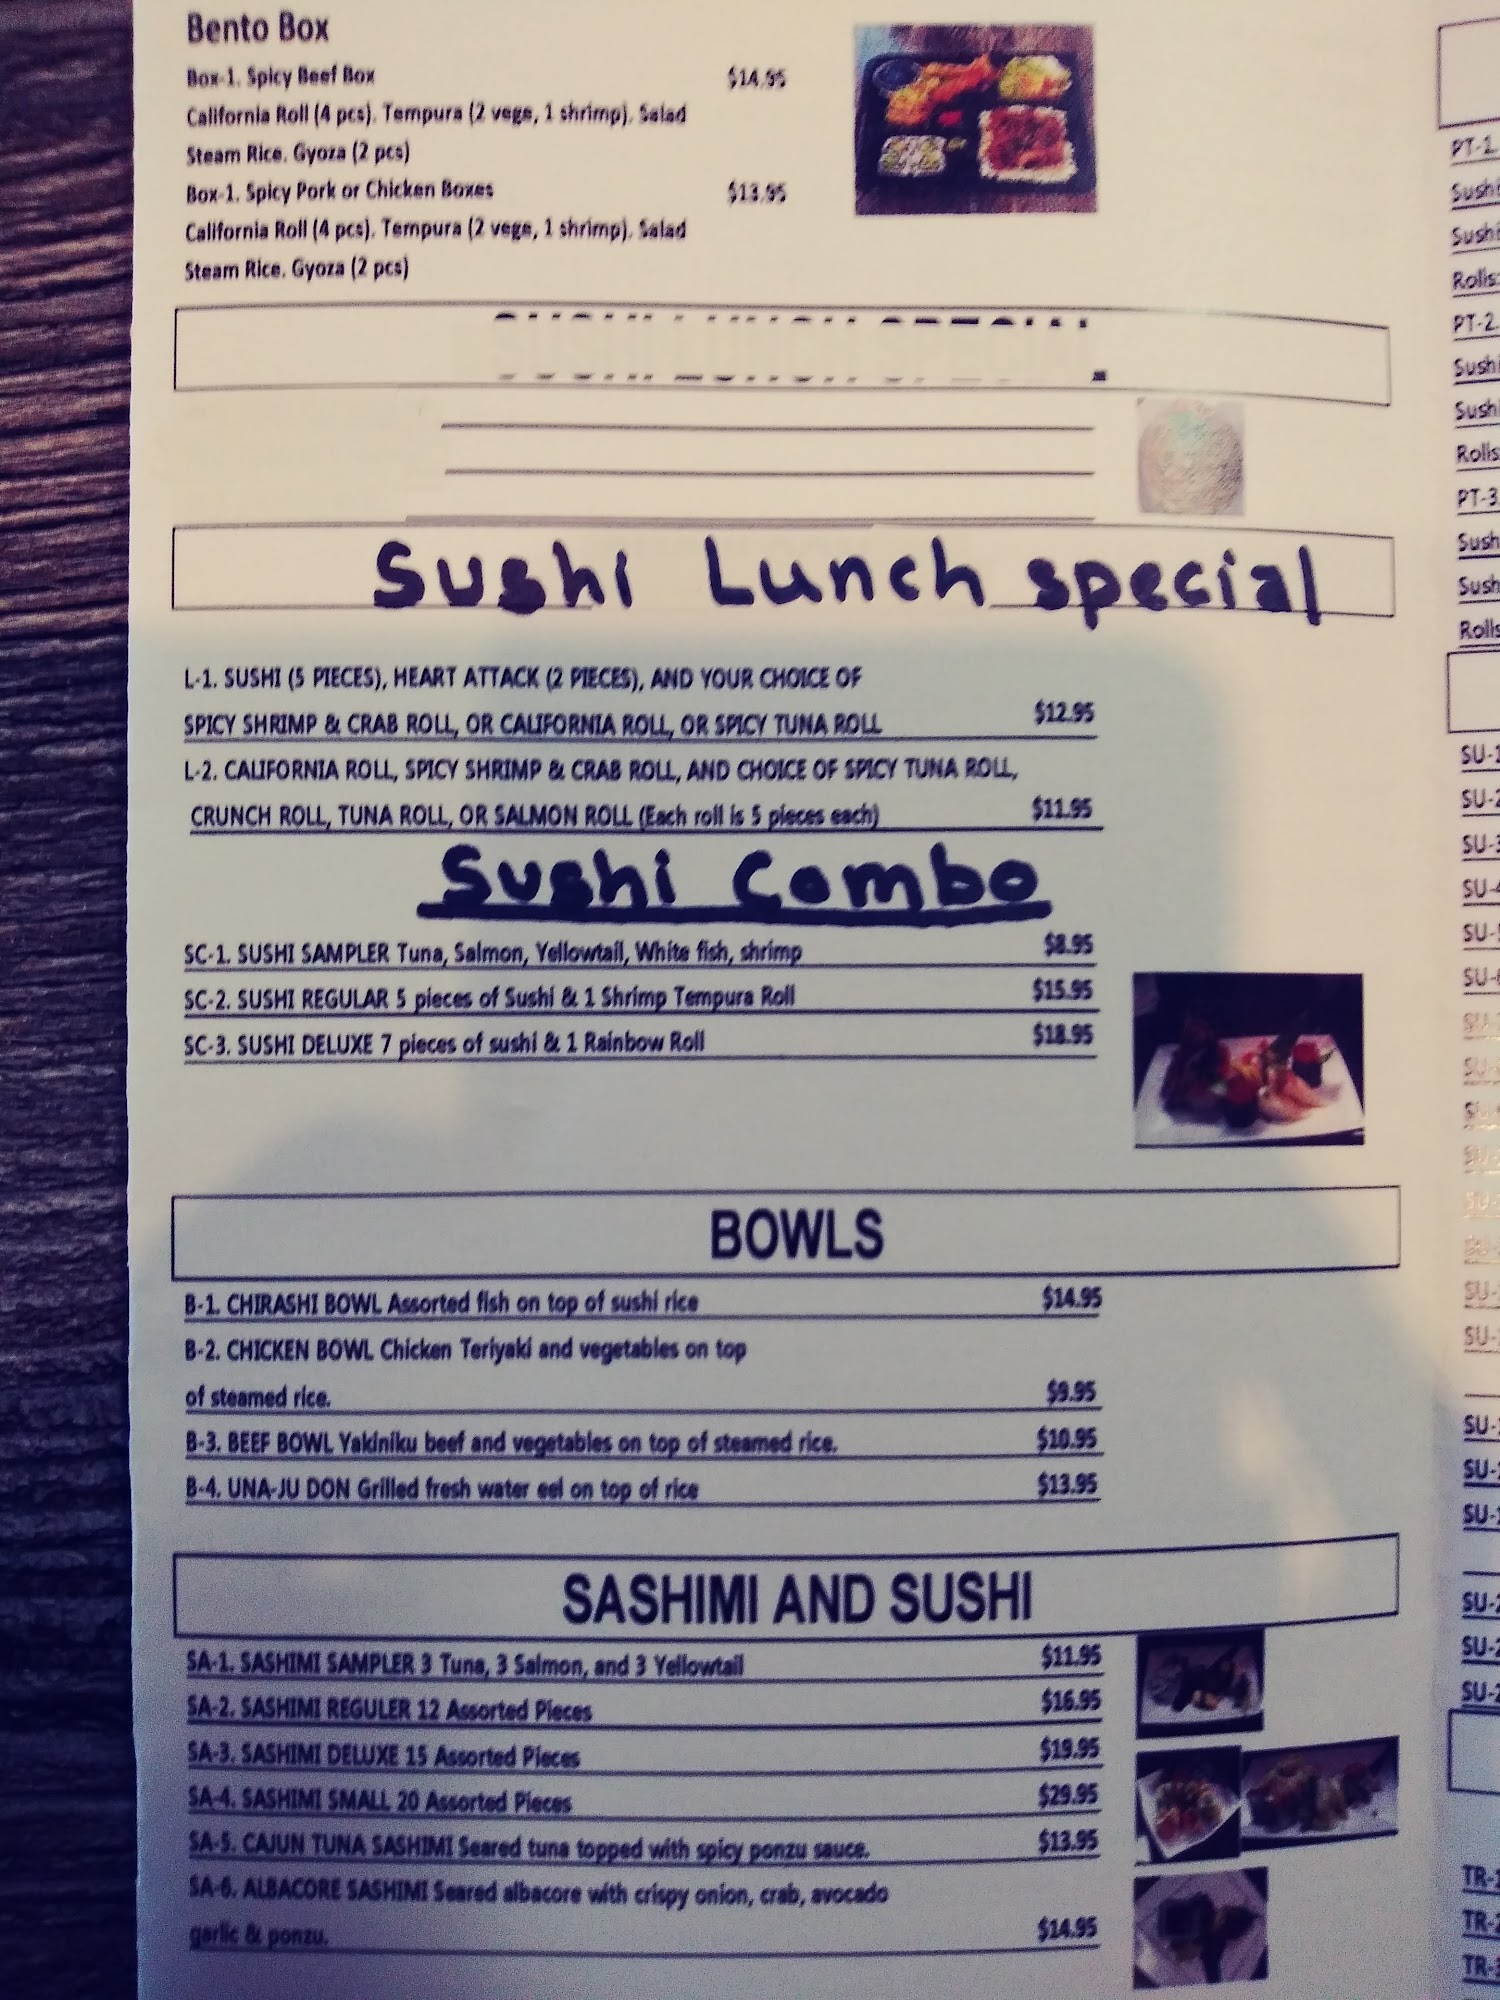 Bento Box
Box-1. Spicy Beef Box $14.95
California Roll (4 pcs). Tempura (2 vege, 1 shrimp). Salad
Steam Rice. Gyoza (2 pcs)
Box-1. Spicy Pork or Chicken Boxes $13.95
California Roll (4 pcs). Tempura (2 vege, 1 shrimp). Salad
Steam Rice. Gyoza (2 pcs)
Sushi Lunch special
L-1. SUSHI (5 PIECES), HEART ATTACK (2 PIECES), AND YOUR CHOICE OF
SPICY SHRIMP & CRAB ROLL, OR CALIFORNIA ROLL, OR SPICY TUNA ROLL $12.95
L-2. CALIFORNIA ROLL, SPICY SHRIMP & CRAB ROLL, AND CHOICE OF SPICY TUNA ROLL,
CRUNCH ROLL, TUNA ROLL, OR SALMON ROLL (Each roll is 5 pieces each) $11.95
Sushi Combo
SC-1. SUSHI SAMPLER Tuna, Salmon, Yellowtail, White fish, shrimp $8.95
SC-2. SUSHI REGULAR 5 pieces of Sushi & 1 Shrimp Tempura Roll $15.95
SC-3. SUSHI DELUXE 7 pieces of sushi & 1 Rainbow Roll $18.95
BOWLS
B-1. CHIRASHI BOWL Assorted fish on top of sushi rice $14.95
B-2. CHICKEN BOWL Chicken Teriyaki and vegetables on top
of steamed rice. $9.95
B-3. BEEF BOWL Yakiniku beef and vegetables on top of steamed rice. $10.95
B-4. UNA-JU DON Grilled fresh water eel on top of rice $13.95
SASHIMI AND SUSHI
SA-1. SASHIMI SAMPLER 3 Tuna, 3 Salmon, and 3 Yellowtail $11.95
SA-2. SASHIMI REGULER 12 Assorted Pieces $16.95
SA-3. SASHIMI DELUXE 15 Assorted Pieces $19.95
SA-4. SASHIMI SMALL 20 Assorted Pieces $29.95
SA-5. CAJUN TUNA SASHIMI Seared tuna topped with spicy ponzu sauce. $13.95
SA-6. ALBACORE SASHIMI Seared albacore with crispy onion, crab, avocado
garlic & ponzu. $14.95
PT-1.
Sushi
Sushi
Rolls:
PT-2.
Sushi
Sushi
Rolls
PT-3
Sush
Sush
Rolls
SU-1
SU-2
SU-3
SU-4
SU-
SU-
SU-
SU-
SU-
SU-
SU-
SU-2
SU-2
SU-2
TR-1
TR-2
TR-3